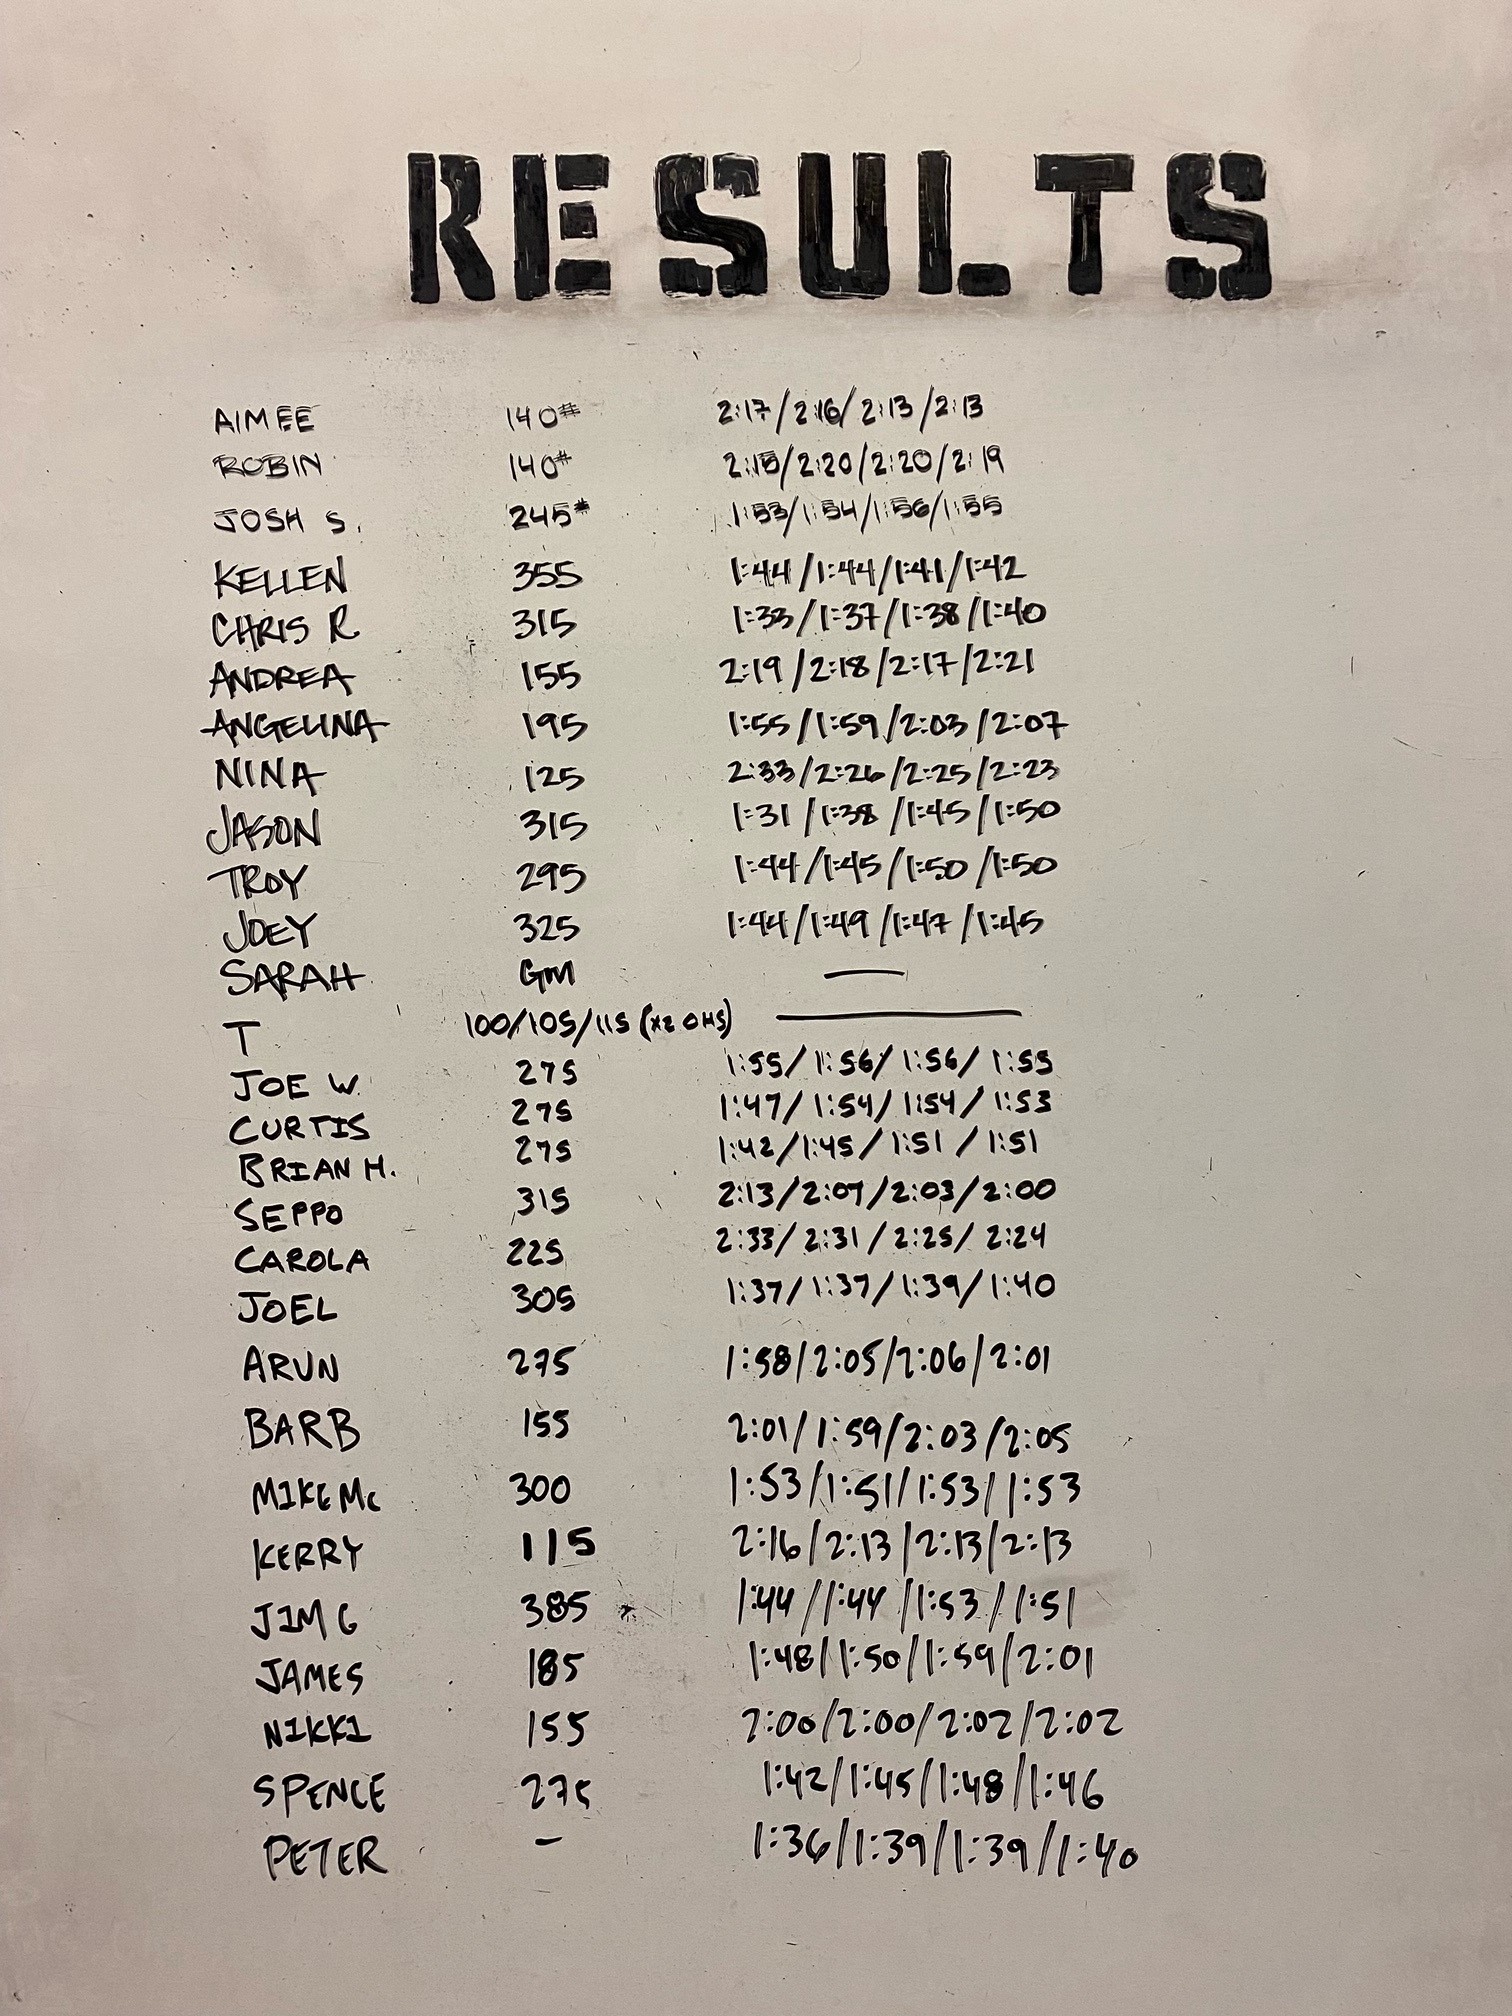 RESULTS
AIMEE 140# 2:17/2:16/2:13/2:13
ROBIN 140# 2:15/2:20/2:20/2:19
JOSH S. 245# 1:53/1:54/1:56/1:55
KELLEN 355 1:44/1:44/1:41/1:42
CHRIS R 315 1:33/1:37/1:38/1:40
ANDREA 155 2:19/2:18/2:17/2:21
ANGELINA 195 1:55/1:59/2:03/2:07
NINA 125 2:33/2:26/2:25/2:23
JASON 315 1:31/1:38/1:45/1:50
TROY 295 1:44/1:45/1:50/1:50
JOEY 325 1:44/1:49/1:47/1:45
SARAH GM —
T 100/105/115 (x2 OHS) —
JOE W. 275 1:55/1:56/1:56/1:55
CURTIS 275 1:47/1:54/1:54/1:53
BRIAN H. 275 1:42/1:45/1:51/1:51
SEPPO 315 2:13/2:07/2:03/2:00
CAROLA 225 2:33/2:31/2:25/2:24
JOEL 305 1:37/1:37/1:39/1:40
ARUN 275 1:58/2:05/2:06/2:01
BARB 155 2:01/1:59/2:03/2:05
MIKE Mc 300 1:53/1:51/1:53/1:53
KERRY 115 2:16/2:13/2:13/2:13
JIM G 385 1:44/1:44/1:53/1:51
JAMES 185 1:48/1:50/1:59/2:01
NIKKI 155 2:00/2:00/2:02/2:02
SPENCE 275 1:42/1:45/1:48/1:46
PETER – 1:36/1:39/1:39/1:40